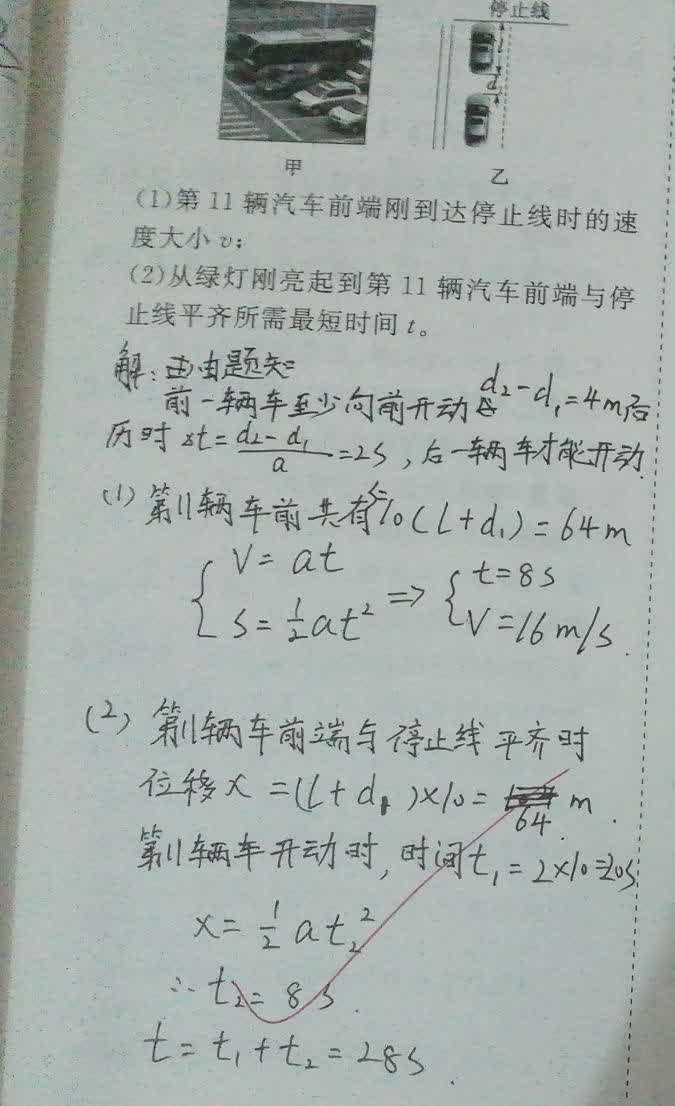 停止线
l
d
甲
乙
(1)第 11 辆汽车前端刚到达停止线时的速
度大小 v;
(2)从绿灯刚亮起到第 11 辆汽车前端与停
止线平齐所需最短时间 t。
解:由题知
前一辆车至少向前开动 d₂-d₁=4m后
历时 Δt=(d₂-d₁)/a=2s,后一辆车才能开动.
(1) 第11辆车前共有S=10(L+d₁)=64m
{ V=at
S=½at² => { t=8s
V=16m/s.
(2) 第11辆车前端与停止线平齐时
位移x=(L+d₁)×10=64m.
第11辆车开动时,时间t₁=2×10=20s
x=½at₂²
∴t₂=8s.
t=t₁+t₂=28s.